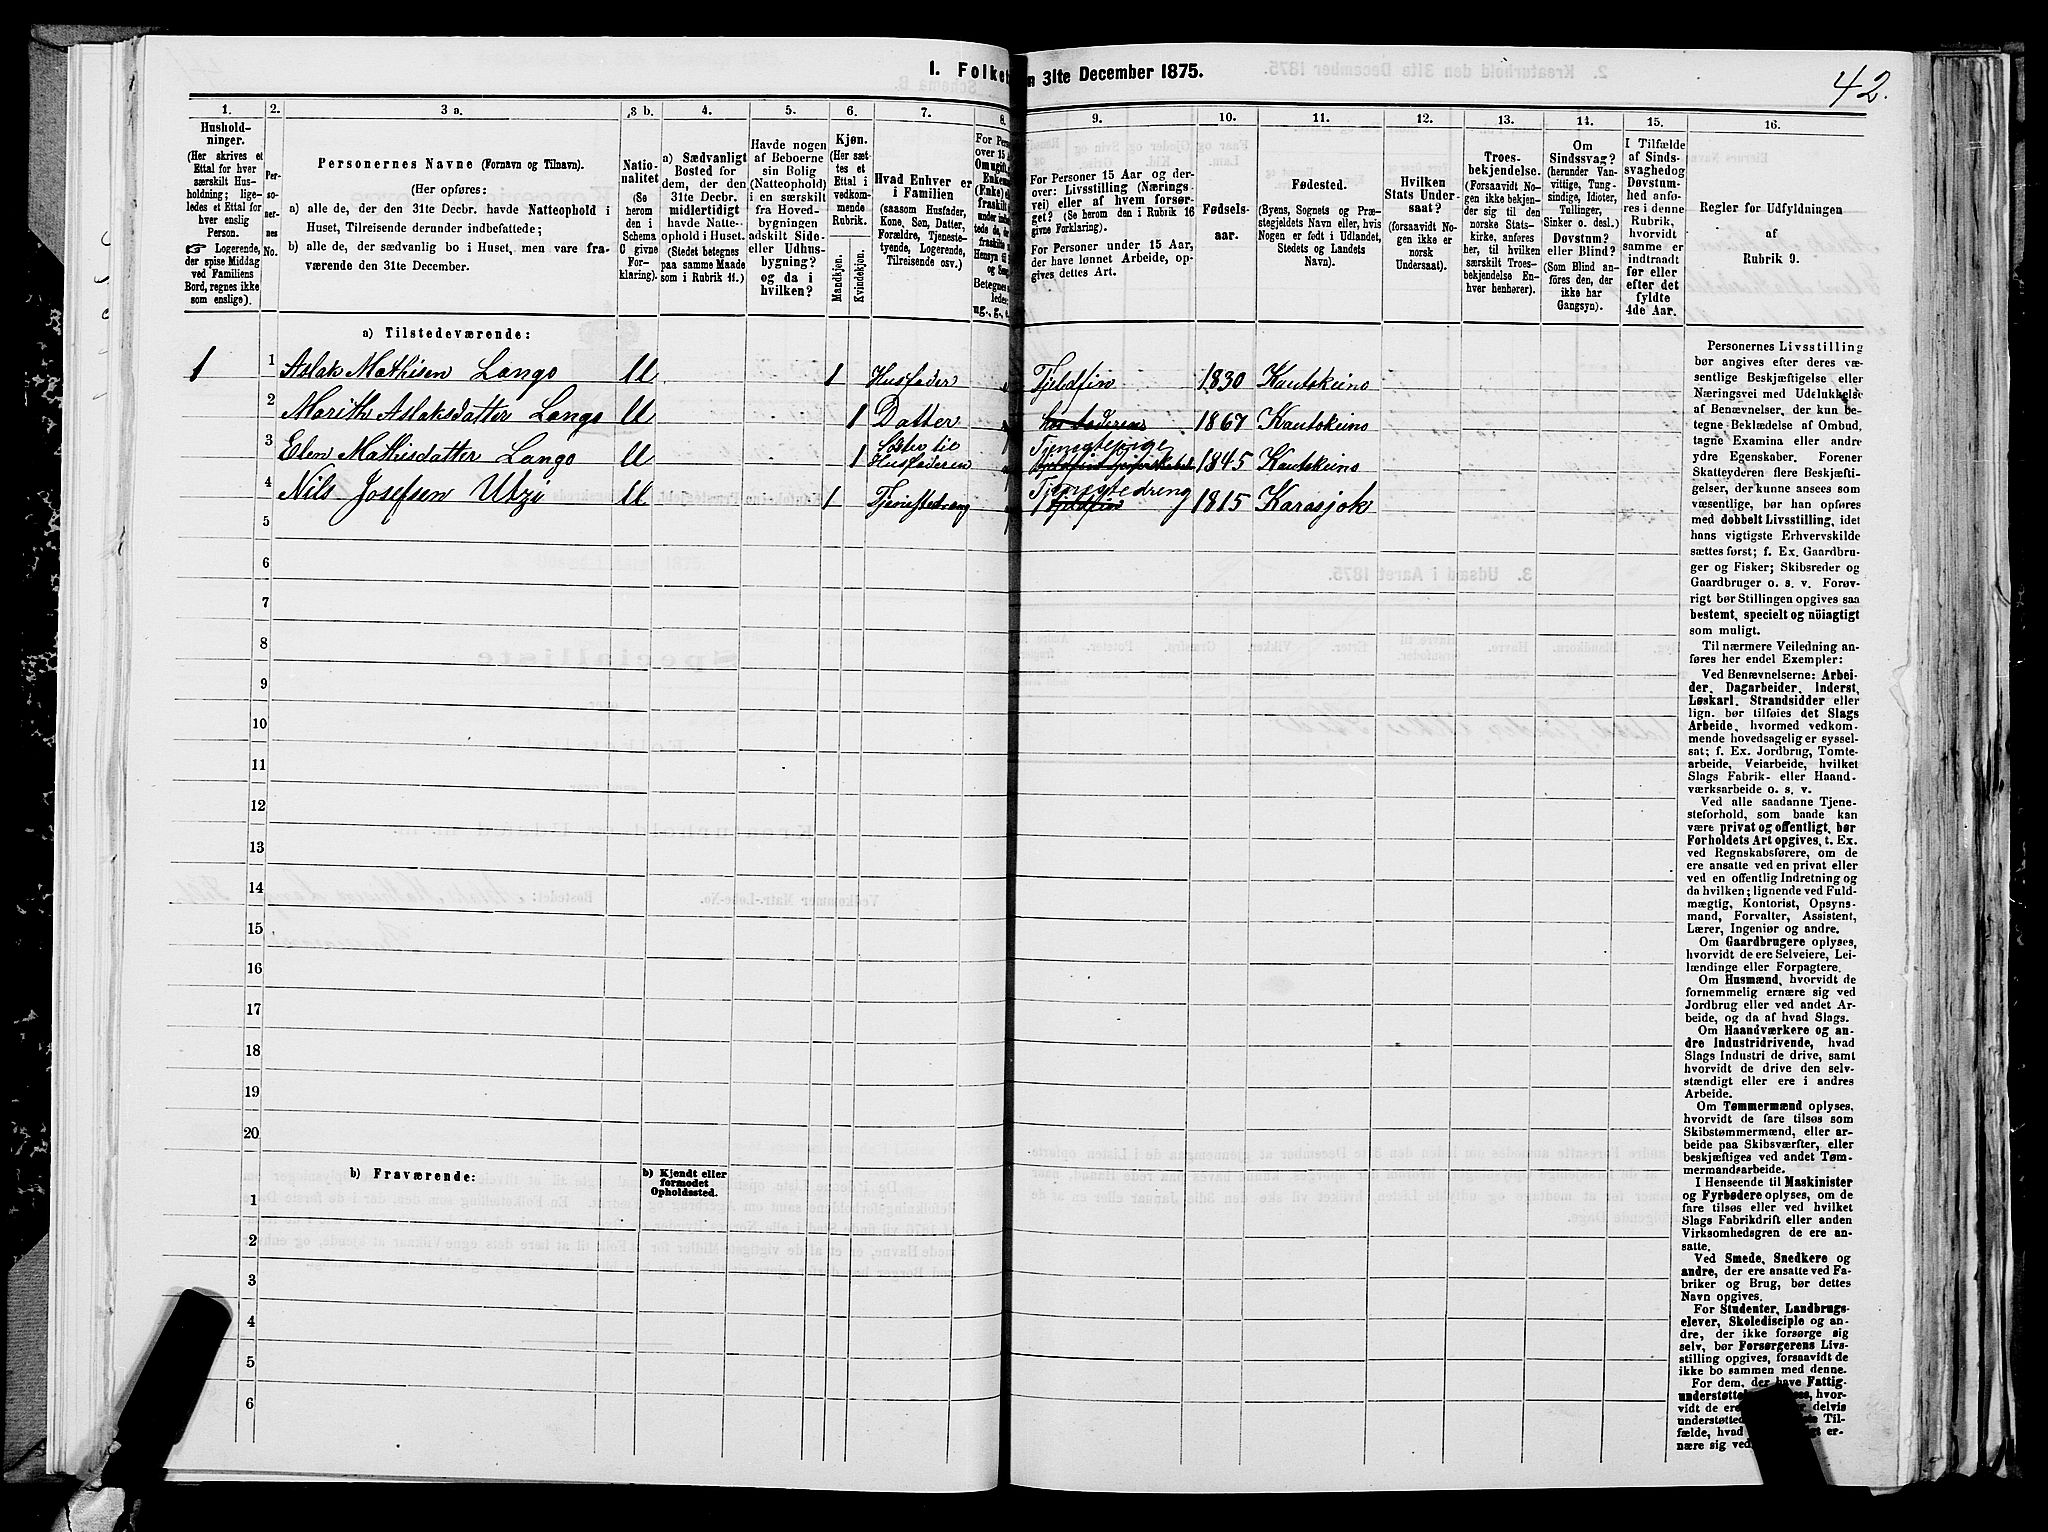 42.
1. Folket
n 31te December 1875.
1.
2.
3 a.
3 b.
4.
5.
6.
7.
8.
9.
10.
11.
12.
13.
14.
15.
16.
Hushold-
ninger.
(Her skrives et
Ettal for hver
særskilt Hus-
holdning; lige-
ledes et Ettal for
hver enslig
Person.
☞ Logerende,
der spise Middag
ved Familiens
Bord, regnes ikke
som enslige).
Per-
so-
ner-
nes
No.
Personernes Navne (Fornavn og Tilnavn).
(Her opføres:
a) alle de, der den 31te Decbr. havde Natteophold i
Huset, Tilreisende derunder indbefattede;
b) alle de, der sædvanlig bo i Huset, men vare fra-
værende den 31te December.
Natio-
nalitet
(Se
herom
den i
Schema
O givne
For-
klaring).
a) Sædvanligt
Bosted for
dem, der den
31te Decbr.
midlertidigt
havde Natte-
ophold i Huset.
(Stedet betegnes
paa samme Maade
som i Rubrik 11.)
Havde nogen
af Beboerne
sin Bolig
(Natteophold)
i en særskilt
fra Hoved-
bygningen
adskilt Side-
eller Udhus-
bygning?
og da i
hvilken?
Kjøn.
(Her sæt-
tes et
Ettal i
vedkom-
mende
Rubrik.
Mandkjøn.
Kvindekjøn.
Hvad Enhver er
i Familien
(saasom Husfader,
Kone, Søn, Datter,
Forældre, Tjeneste-
tyende, Logerende,
Tilreisende osv.)
For Personer 15 Aar og der-
over: Livsstilling (Nærings-
vei) eller af hvem forsør-
get? (Se herom den i Rubrik 16
givne Forklaring).
For Personer under 15 Aar,
der have lønnet Arbeide, op-
gives dettes Art.
Fødsels-
aar.
Fødested.
(Byens, Sognets og Præ-
stegjeldets Navn eller, hvis
Nogen er født i Udlandet,
Stedets og Landets
Navn).
Hvilken
Stats Under-
saat?
(forsaavidt No-
gen ikke er
norsk
Undersaat).
Troes-
bekjendelse.
(Forsaavidt No-
gen ikke bekjen-
der sig til den
norske Stats-
kirke, anføres
her, til hvilken
særskilt Troes-
bekjendelse En-
hver henhører).
Om
Sindssvag?
(herunder Van-
vittige, Tung-
sindige, Idioter,
Tullinger,
Sinker o. desl.)
Døvstum?
eller Blind?
(Som Blind an-
føres den, der
ikke har
Gangsyn).
I Tilfælde
af Sinds-
svaghed og
Døvstum-
hed anfø-
res i denne
Rubrik,
hvorvidt
samme er
indtraadt
før eller
efter det
fyldte
4de Aar.
Regler for Udfyldningen
af
Rubrik 9.
a) Tilstedeværende:
1 1 Aslak Mathisen Lango U 1 Husfader Fjeldfin 1830 Kautokeino
2 Marith Aslaksdatter Lango U 1 Datter hos Faderen 1867 Kautokeino
3 Elen Mathisdatter Lango U 1 Søster til Husfaderen Tjenestepige 1845 Kautokeino
4 Nils Josefsen Utzi U 1 Tjenestedreng Tjenestedreng Fjeldfin 1815 Karasjok
5
6
7
8
9
10
11
12
13
14
15
16
17
18
19
20
b) Fraværende:
b) Kjendt eller
formodet
Opholdssted.
1
2
3
4
5
6
Personernes Livsstilling
bør angives efter deres væ-
sentlige Beskjæftigelse eller
Næringsvei med Udelukkelse
af Benævnelser, der kun be-
tegne Beklædelse af Ombud,
tagne Examina eller andre
ydre Egenskaber. Forener
Skatteyderen flere Beskjæfti-
gelser, der kunne ansees som
væsentlige, bør han opføres
med dobbelt Livsstilling, idet
hans vigtigste Erhvervskilde
sættes først; f. Ex. Gaardbru-
ger og Fisker; Skibsreder og
Gaardbruger o. s. v. Forøv-
rigt bør Stillingen opgives saa
bestemt, specielt og nöiagtigt
som muligt.
Til nærmere Veiledning an-
føres her endel Exempler:
Ved Benævnelserne: Arbei-
der, Dagarbeider, Inderst,
Løskarl, Strandsidder eller
lign. bør tilføies det Slags
Arbeide, hvormed vedkom-
mende hovedsagelig er syssel-
sat; f. Ex. Jordbrug, Tomte-
arbeide, Veiarbeide, hvilket
Slags Fabrik- eller Haand-
værksarbeide o. s. v.
Ved alle saadanne Tjene-
steforhold, som baade kan
være privat og offentligt, bør
Forholdets Art opgives, t. Ex.
ved Regnskabsførere, om de
ere ansatte ved en privat eller
ved en offentlig Indretning og
da hvilken; lignende ved Fuld-
mægtig, Kontorist, Opsyns-
mand, Forvalter, Assistent,
Lærer, Ingeniør og andre.
Om Gaardbrugere oplyses,
hvorvidt de ere Selveiere, Lei-
lændinge eller Forpagtere.
Om Husmænd, hvorvidt de
fornemmelig ernære sig ved
Jordbrug eller ved andet Ar-
beide, og da af hvad Slags.
Om Haandværkere og an-
dre Industridrivende, hvad
Slags Industri de drive, samt
hvorvidt de drive den selv-
stændigt eller ere i andres
Arbeide.
Om Tømmermænd oplyses,
hvorvidt de fare tilsøs som
Skibstømmermænd, eller ar-
beide paa Skibsværfter, eller
beskjæftiges ved andet Tøm-
mermandsarbeide.
I Henseende til Maskinister
og Fyrbødere oplyses, om de
fare tilsøs eller ved hvilket
Slags Fabrikdrift eller anden
Virksomhedsgren de ere an-
satte.
Ved Smede, Snedkere og
andre, der ere ansatte ved Fa-
briker og Brug, bør dettes
Navn opgives.
For Studenter, Landbrugs-
elever, Skoledisciple og an-
dre, der ikke forsørge sig
selv, bør Forsørgerens Livs-
stilling opgives, forsaavidt de
ikke bo sammen med denne.
For dem, der have Fattig-